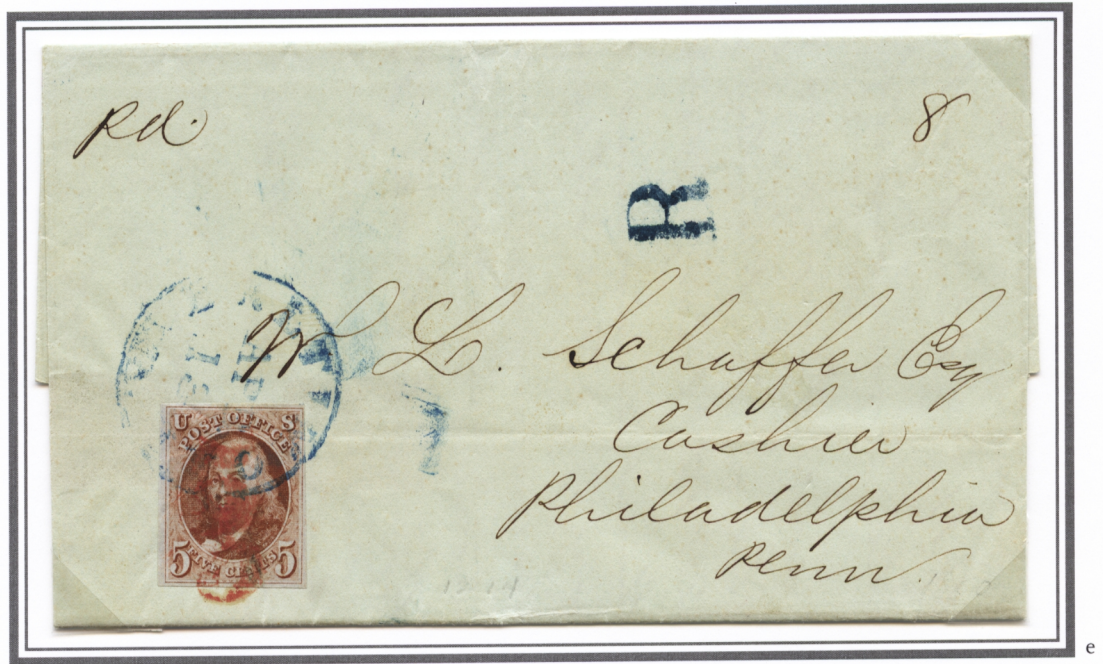 Rd.
8
R
W L. Schaffer Esq
Cashier
Philadelphia
Penn.
U S
POST OFFICE
FIVE CENTS
5 5
e